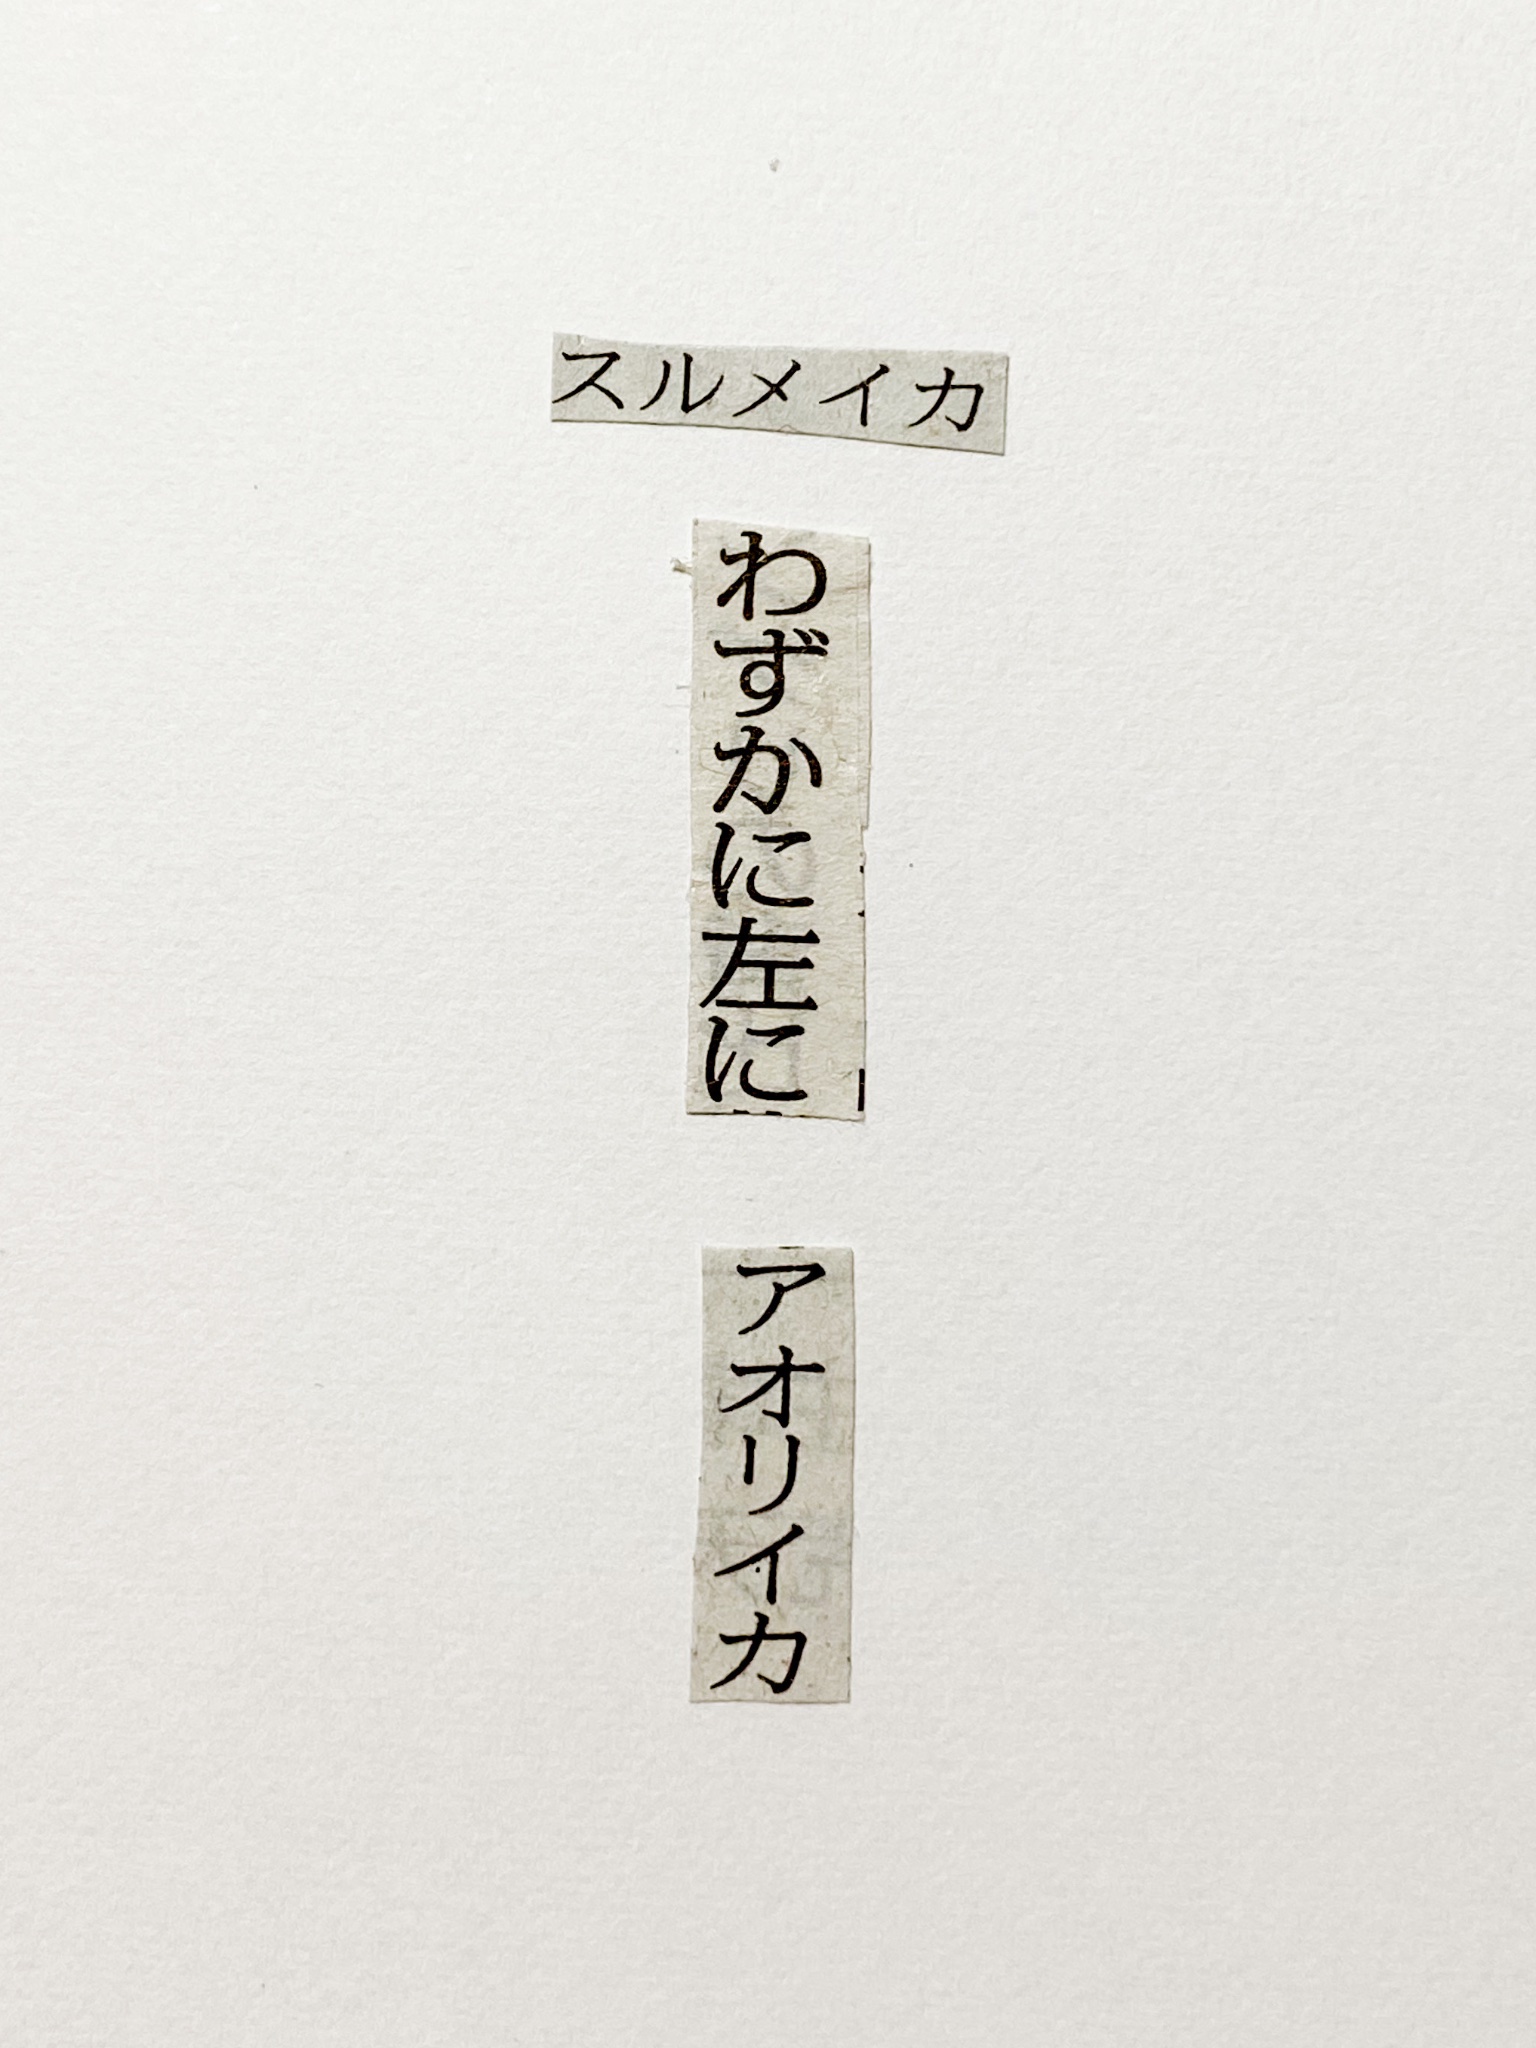 スルメイカ
わずかに左に
アオリイカ